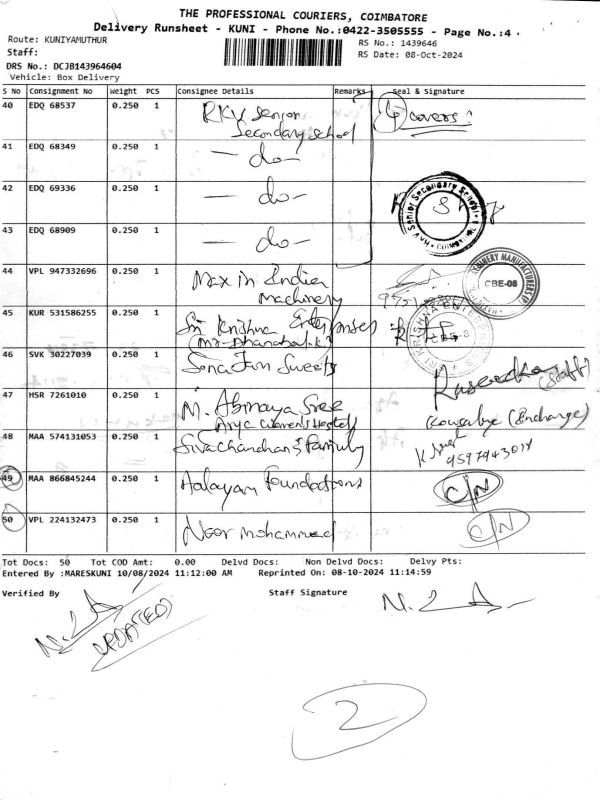 THE PROFESSIONAL COURIERS, COIMBATORE
Delivery Runsheet - KUNI - Phone No.:0422-3505555 - Page No.:4
Route: KUNIYAMUTHUR
RS No.: 1439646
Staff:
RS Date: 08-Oct-2024
DRS No.: DCJB143964604
Vehicle: Box Delivery
S No Consignment No Weight PCS Consignee Details Remarks Seal & Signature
40 EDQ 68537 0.250 1 RKV Senior Secondary School 4 covers:
41 EDQ 68349 0.250 1 — do —
42 EDQ 69336 0.250 1 — do —
Senior Secondary School
43 EDQ 68909 0.250 1 — do —
44 VPL 947332696 0.250 1 Max in India Machinery
CBE-08
45 KUR 531586255 0.250 1 Sri Krishna Enterprises
46 SVK 30227039 0.250 1 Sona Jam Sweets
(Staff)
47 HSR 7261010 0.250 1 M. Abinaya Sree
(Incharge)
48 MAA 574131053 0.250 1 Sivachandhans Family
49 MAA 866845244 0.250 1 Aalayam Foundations C/N
50 VPL 224132473 0.250 1 Noor mohammed C/N
Tot Docs: 50 Tot COD Amt: 0.00 Delvd Docs: Non Delvd Docs: Delvy Pts:
Entered By :MARESKUNI 10/08/2024 11:12:00 AM Reprinted On: 08-10-2024 11:14:59
Verified By Staff Signature
UPDATED
2